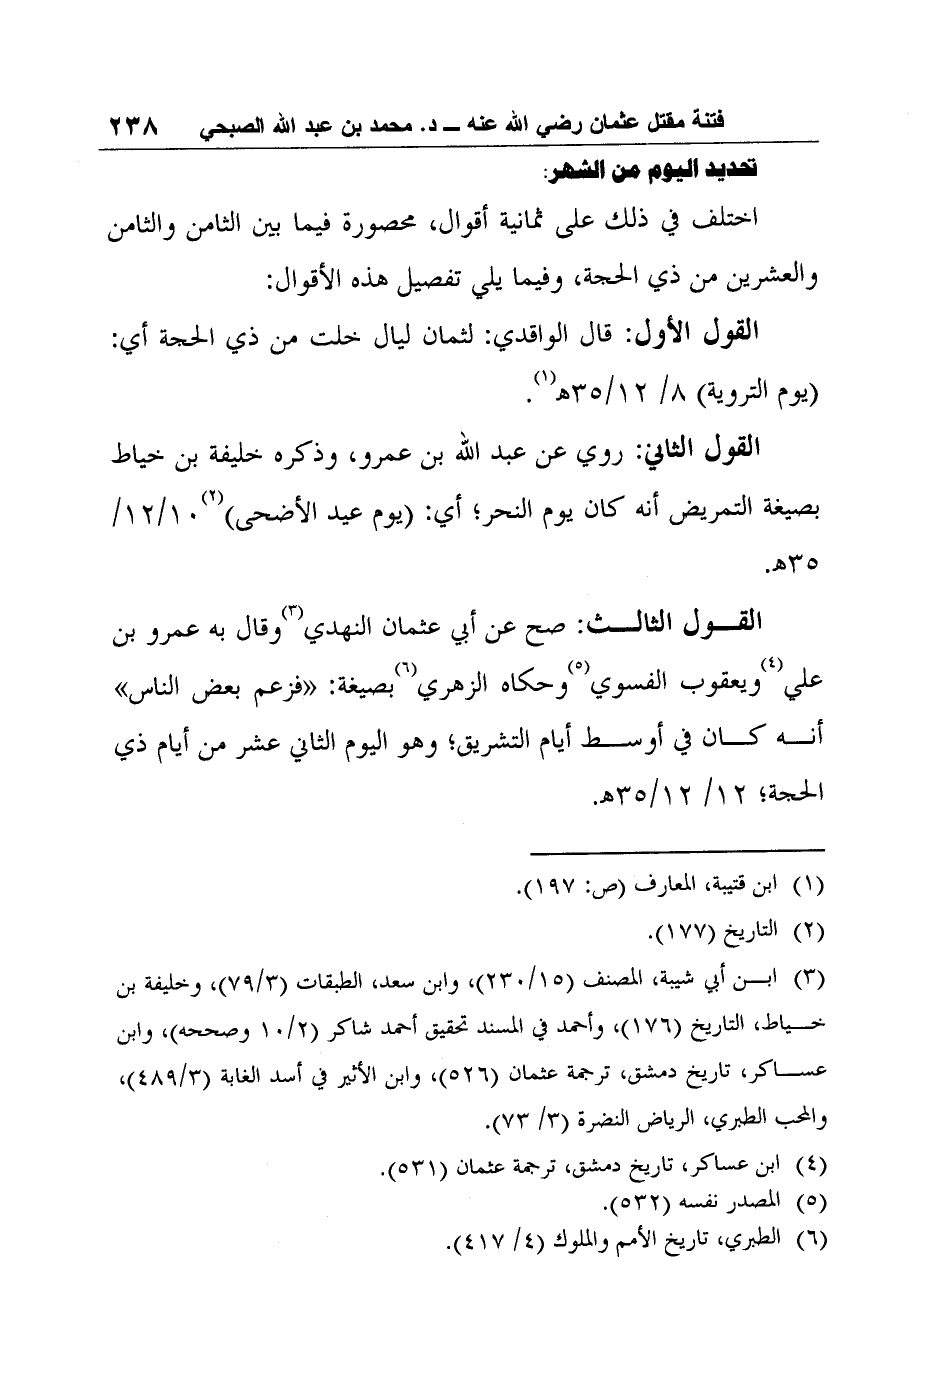 فتنة مقتل عثمان رضي الله عنه ــ د. محمد بن عبد الله الصبحي ٢٣٨
تحديد اليوم من الشهر:
اختلف في ذلك على ثمانية أقوال، محصورة فيما بين الثامن والثامن
والعشرين من ذي الحجة، وفيما يلي تفصيل هذه الأقوال:
القول الأول: قال الواقدي: لثمان ليال خلت من ذي الحجة أي:
(يوم التروية) ٨/ ٣٥/١٢هـ(١).
القول الثاني: روي عن عبد الله بن عمرو، وذكره خليفة بن خياط
بصيغة التمريض أنه كان يوم النحر؛ أي: (يوم عيد الأضحى)(٢)١٢/١٠/
٣٥هـ.
القــول الثالــث: صح عن أبي عثمان النهدي(٣)وقال به عمرو بن
علي(٤)ويعقوب الفسوي(٥)وحكاه الزهري(٦)بصيغة: «فزعم بعض الناس»
أنــه كــان في أوســط أيام التشريق؛ وهو اليوم الثاني عشر من أيام ذي
الحجة؛ ١٢/ ٣٥/١٢هـ.
(١) ابن قتيبة، المعارف (ص: ١٩٧).
(٢) التاريخ (١٧٧).
(٣) ابــن أبي شيبة، المصنف (٢٣٠/١٥)، وابن سعد، الطبقات (٧٩/٣)، وخليفة بن
خــياط، التاريخ (١٧٦)، وأحمد في المسند تحقيق أحمد شاكر (١٠/٢ وصححه)، وابن
عســاكر، تاريخ دمشق، ترجمة عثمان (٥٢٦)، وابن الأثير في أسد الغابة (٤٨٩/٣)،
والمحب الطبري، الرياض النضرة (٣/ ٧٣).
(٤) ابن عساكر، تاريخ دمشق، ترجمة عثمان (٥٣١).
(٥) المصدر نفسه (٥٣٢).
(٦) الطبري، تاريخ الأمم والملوك (٤/ ٤١٧).